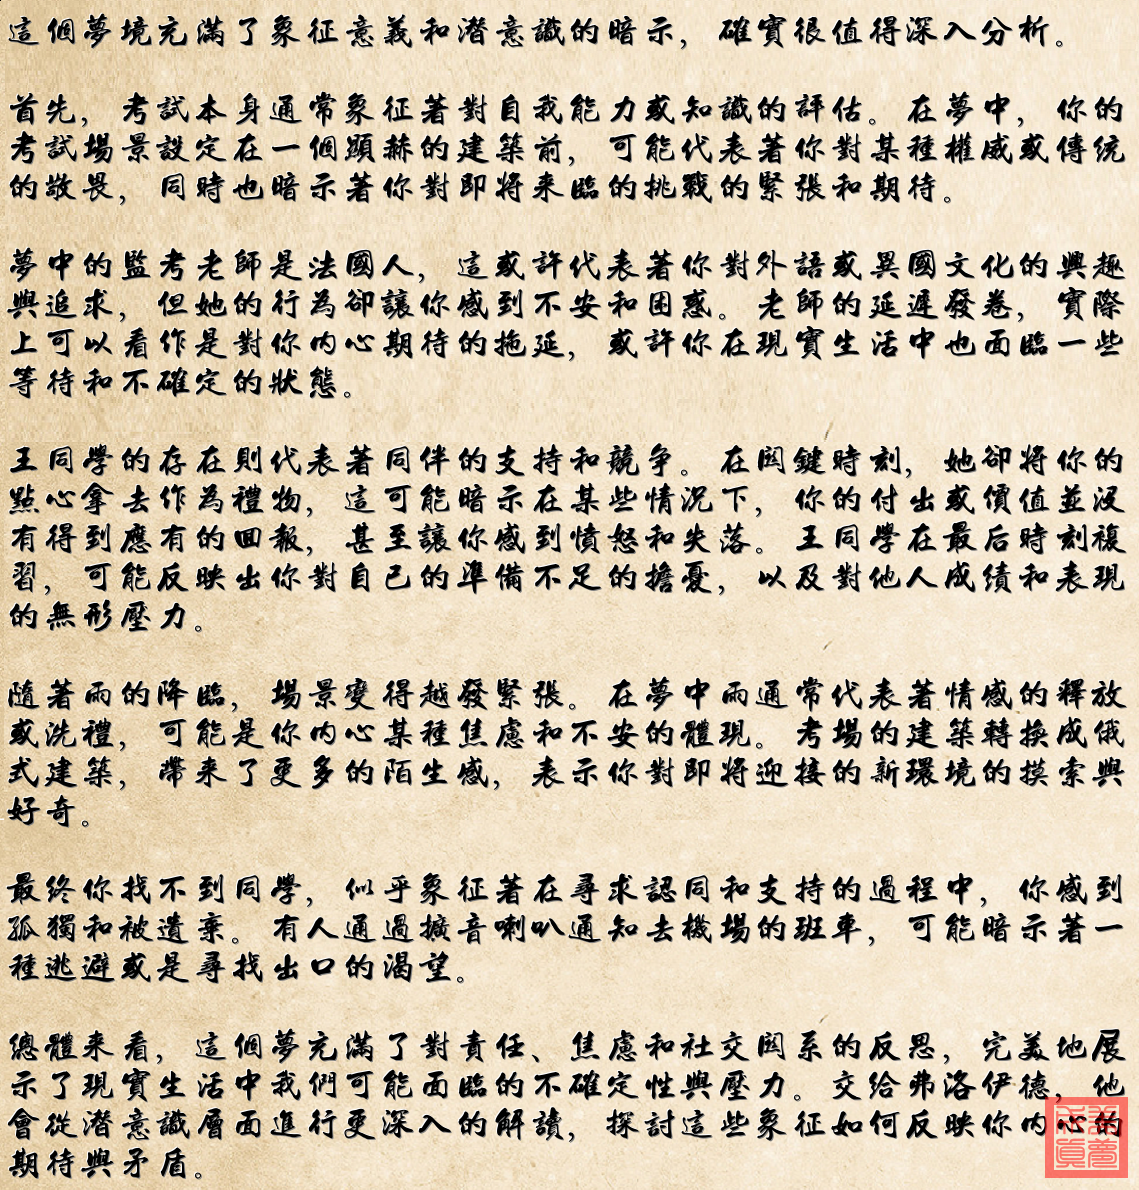 這個夢境充滿了象征意義和潛意識的暗示，確實很值得深入分析。
首先，考試本身通常象征著對自我能力或知識的評估。在夢中，你的
考試場景設定在一個顯赫的建築前，可能代表著你對某種權威或傳統
的敬畏，同時也暗示著你對即將来臨的挑戰的緊張和期待。
夢中的監考老師是法國人，這或許代表著你對外語或異國文化的興趣
與追求，但她的行為卻讓你感到不安和困惑。老師的延遲發卷，實際
上可以看作是對你内心期待的拖延，或許你在現實生活中也面臨一些
等待和不確定的狀態。
王同學的存在則代表著同伴的支持和競争。在関鍵時刻，她卻將你的
點心拿去作為禮物，這可能暗示在某些情况下，你的付出或價值並沒
有得到應有的回報，甚至讓你感到憤怒和失落。王同學在最后時刻複
習，可能反映出你對自己的準備不足的擔憂，以及對他人成績和表現
的無形壓力。
隨著雨的降臨，場景變得越發緊張。在夢中雨通常代表著情感的釋放
或洗禮，可能是你内心某種焦慮和不安的體現。考場的建築轉換成俄
式建築，帶来了更多的陌生感，表示你對即將迎接的新環境的摸索與
好奇。
最終你找不到同學，似乎象征著在尋求認同和支持的過程中，你感到
孤獨和被遺棄。有人通過擴音喇叭通知去機場的班車，可能暗示著一
種逃避或是尋找出口的渴望。
總體来看，這個夢充滿了對責任、焦慮和社交関系的反思，完美地展
示了現實生活中我們可能面臨的不確定性與壓力。交給弗洛伊德，他
會從潛意識層面進行更深入的解讀，探討這些象征如何反映你内心的
期待與矛盾。